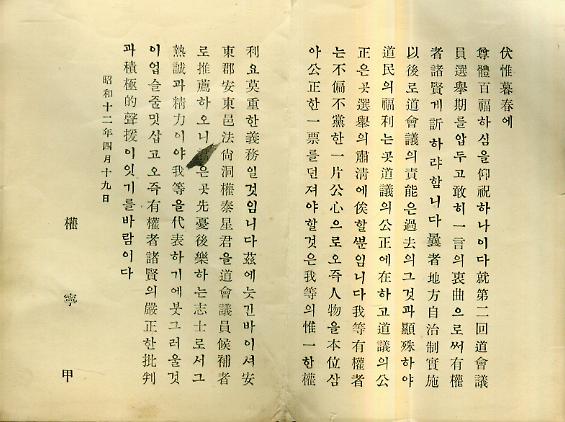 伏惟暮春에
尊體百福하심을仰祝하나이다就第二回道會議
員選擧期를압두고敢히一言의衷曲으로써有權
者諸賢게訴하랴합니다曩者地方自治制實施
以後로道會議의責能은過去의그것과顯殊하야
道民의福利는곳道議의公正에在하고道議의公
正은곳選擧의肅淸에俟할뿐입니다我等有權者
는不偏不黨한一片公心으로오즉人物을本位삼
아公正한一票를던져야할것은我等의惟一한權
利요莫重한義務일것입니다玆에늣긴바이셔安
東郡安東邑法尙洞權泰星君을道會議員候補者
로推薦하오니 은곳先憂後樂하는志士로서그
熱誠과精力이야我等을代表하기에붓그러울것
이업슬줄밋삽고오즉有權者諸賢의嚴正한批判
과積極的聲援이잇기를바람이다
昭和十二年四月十九日
權寧甲